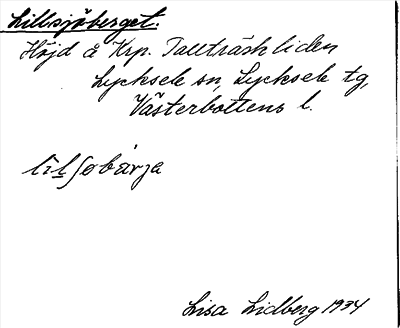 Lillsjöberget.
Höjd å Krp. Tallträskliden
Lycksele sn, Lycksele tg,
Västerbottens l.
lilʃøbärja
Lisa Lidberg 1934